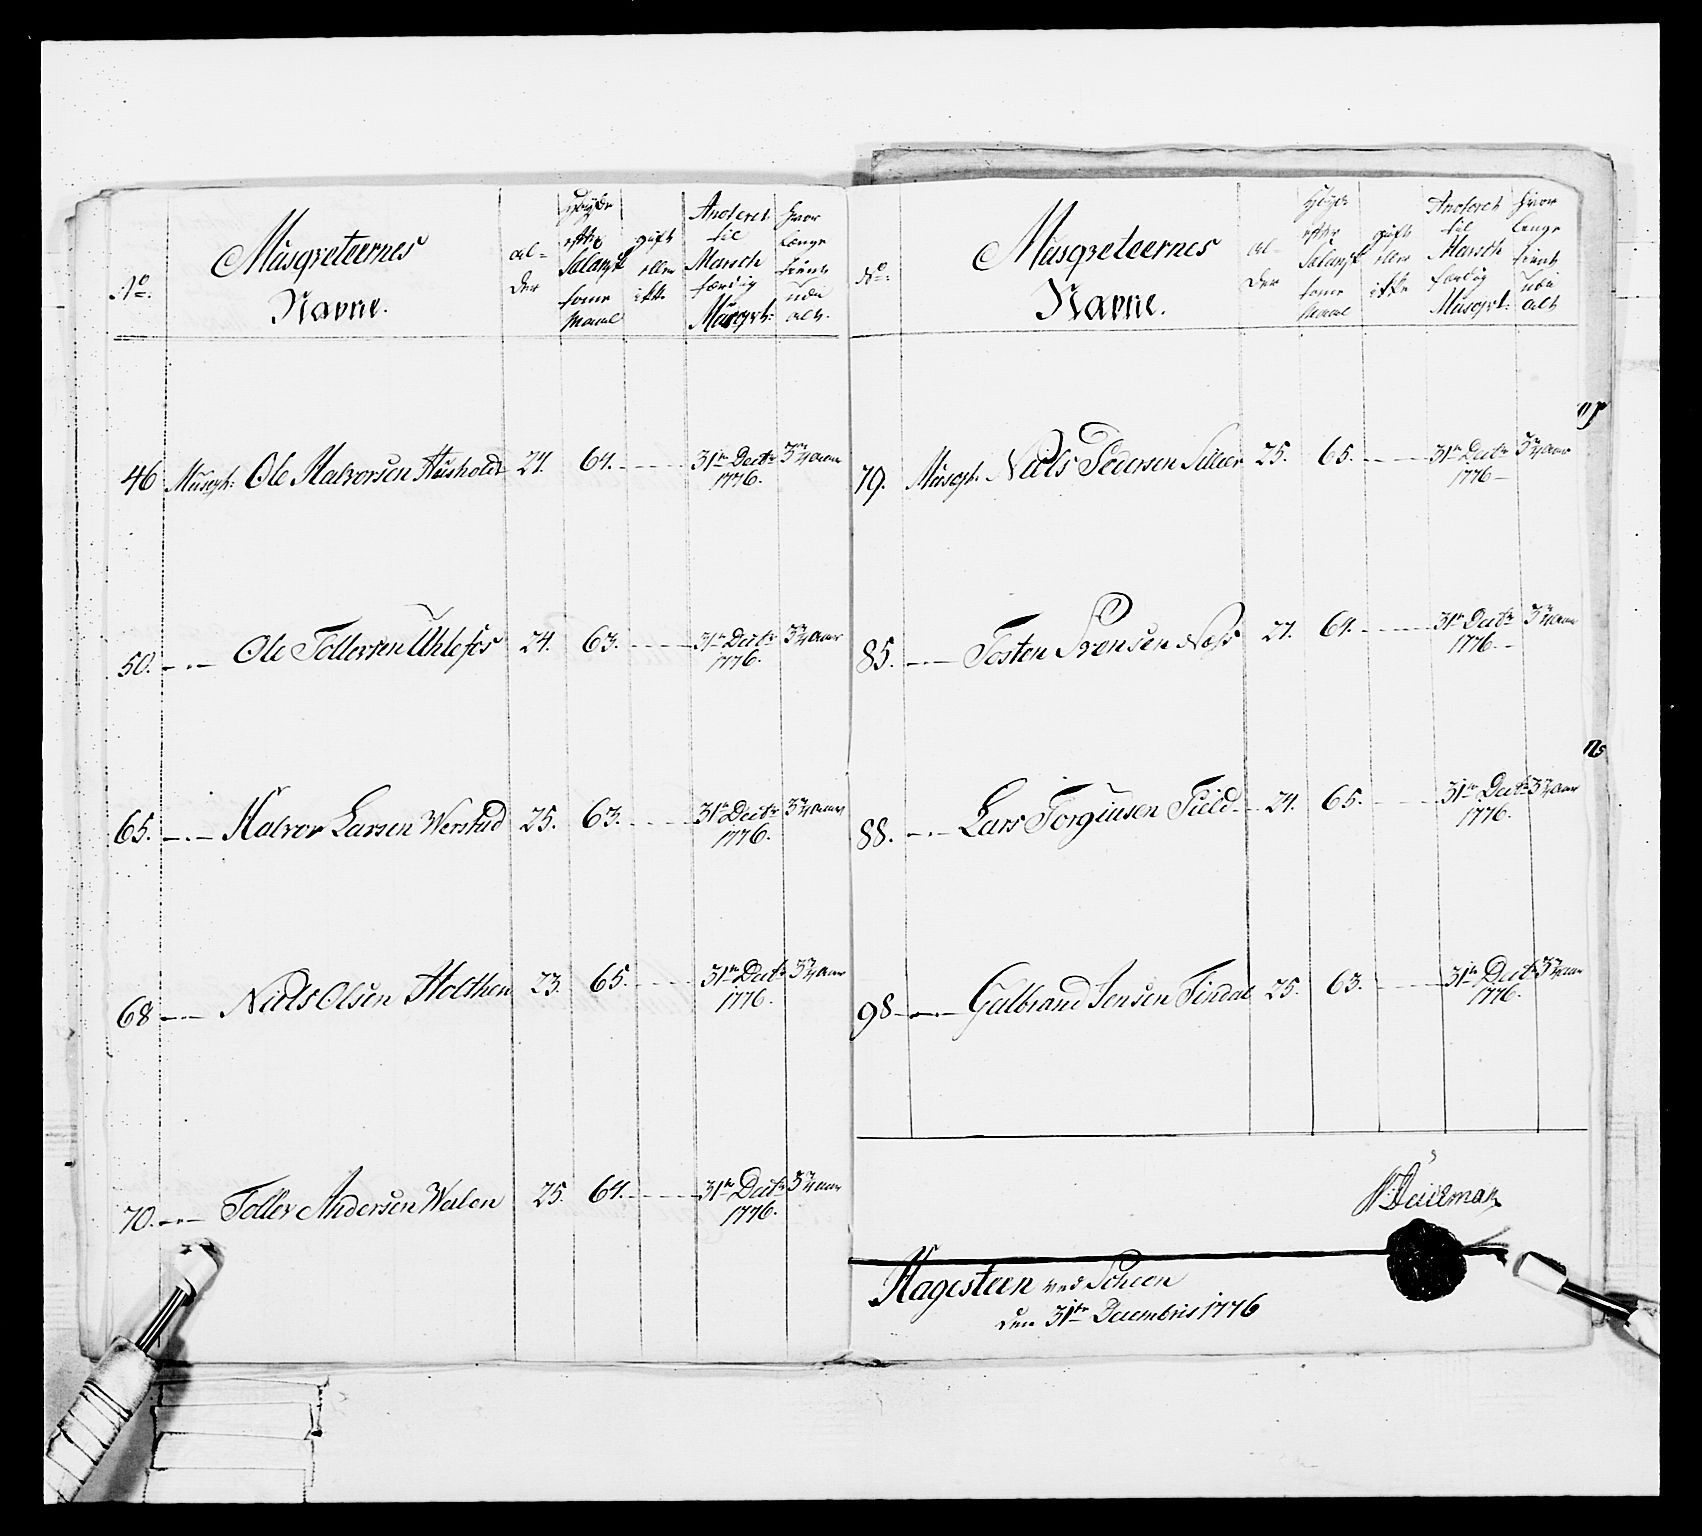 No: Musqveteernes Navne. al= der Høyde efter Salangst. somme Maal gift eller ikke Anderet til March færdig Musqvt: hvor længe tient udi alt.
46 Musqt: Ole Halvorsen Huusholdt 24. 64. 31te Decbr 1776. 3 aar
50. Ole Tollersen Uhlefos 24. 63. 31te Decbr 1776. 3 aar
65. Halvor Larsen Werstad 25. 63. 31te Decbr 1776. 3 aar
68 Niels Olsen Holthen 23. 65. 31te Decbr 1776. 3 aar
70. Toller Andersen Walen 25. 64. 31te Decbr 1776. 3 aar
No: Musqveteernes Navne. al= der Høyde efter somme Maal gift eller ikke Anderet til March færdig Musqvt: hvor længe tient udi alt
79. Musqt: Niels Pedersen 25. 65. 31te Decbr 1776 3 aar
85. Tosten Svensen Næss 27. 64. 31te Decbr 1776. 3 aar
88. Lars Torgiusen Field 24. 65. 31te Decbr 1776. 3 aar
98 Gulbrand Jensen Tindal 25. 63. 31te Decbr 1776. 3 aar
Hagesteen ved Scheen
den 31te Decembris 1776